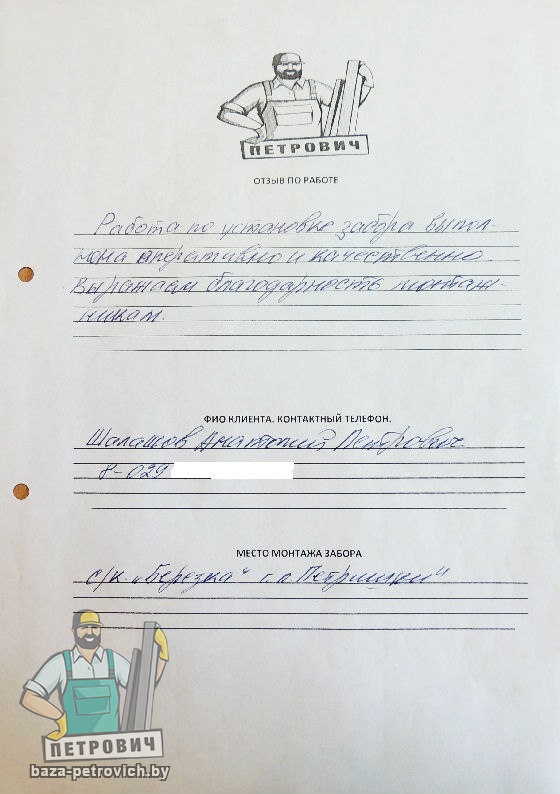 ПЕТРОВИЧ
ОТЗЫВ ПО РАБОТЕ
Работа по установке забора выпол-
нена оперативно и качественно.
Выражаем благодарность монтаж-
никам.
ФИО КЛИЕНТА. КОНТАКТНЫЙ ТЕЛЕФОН.
Шалашов Анатолий Петрович
8-029
МЕСТО МОНТАЖА ЗАБОРА
с/к "Березка" г.п.
ПЕТРОВИЧ
baza-petrovich.by